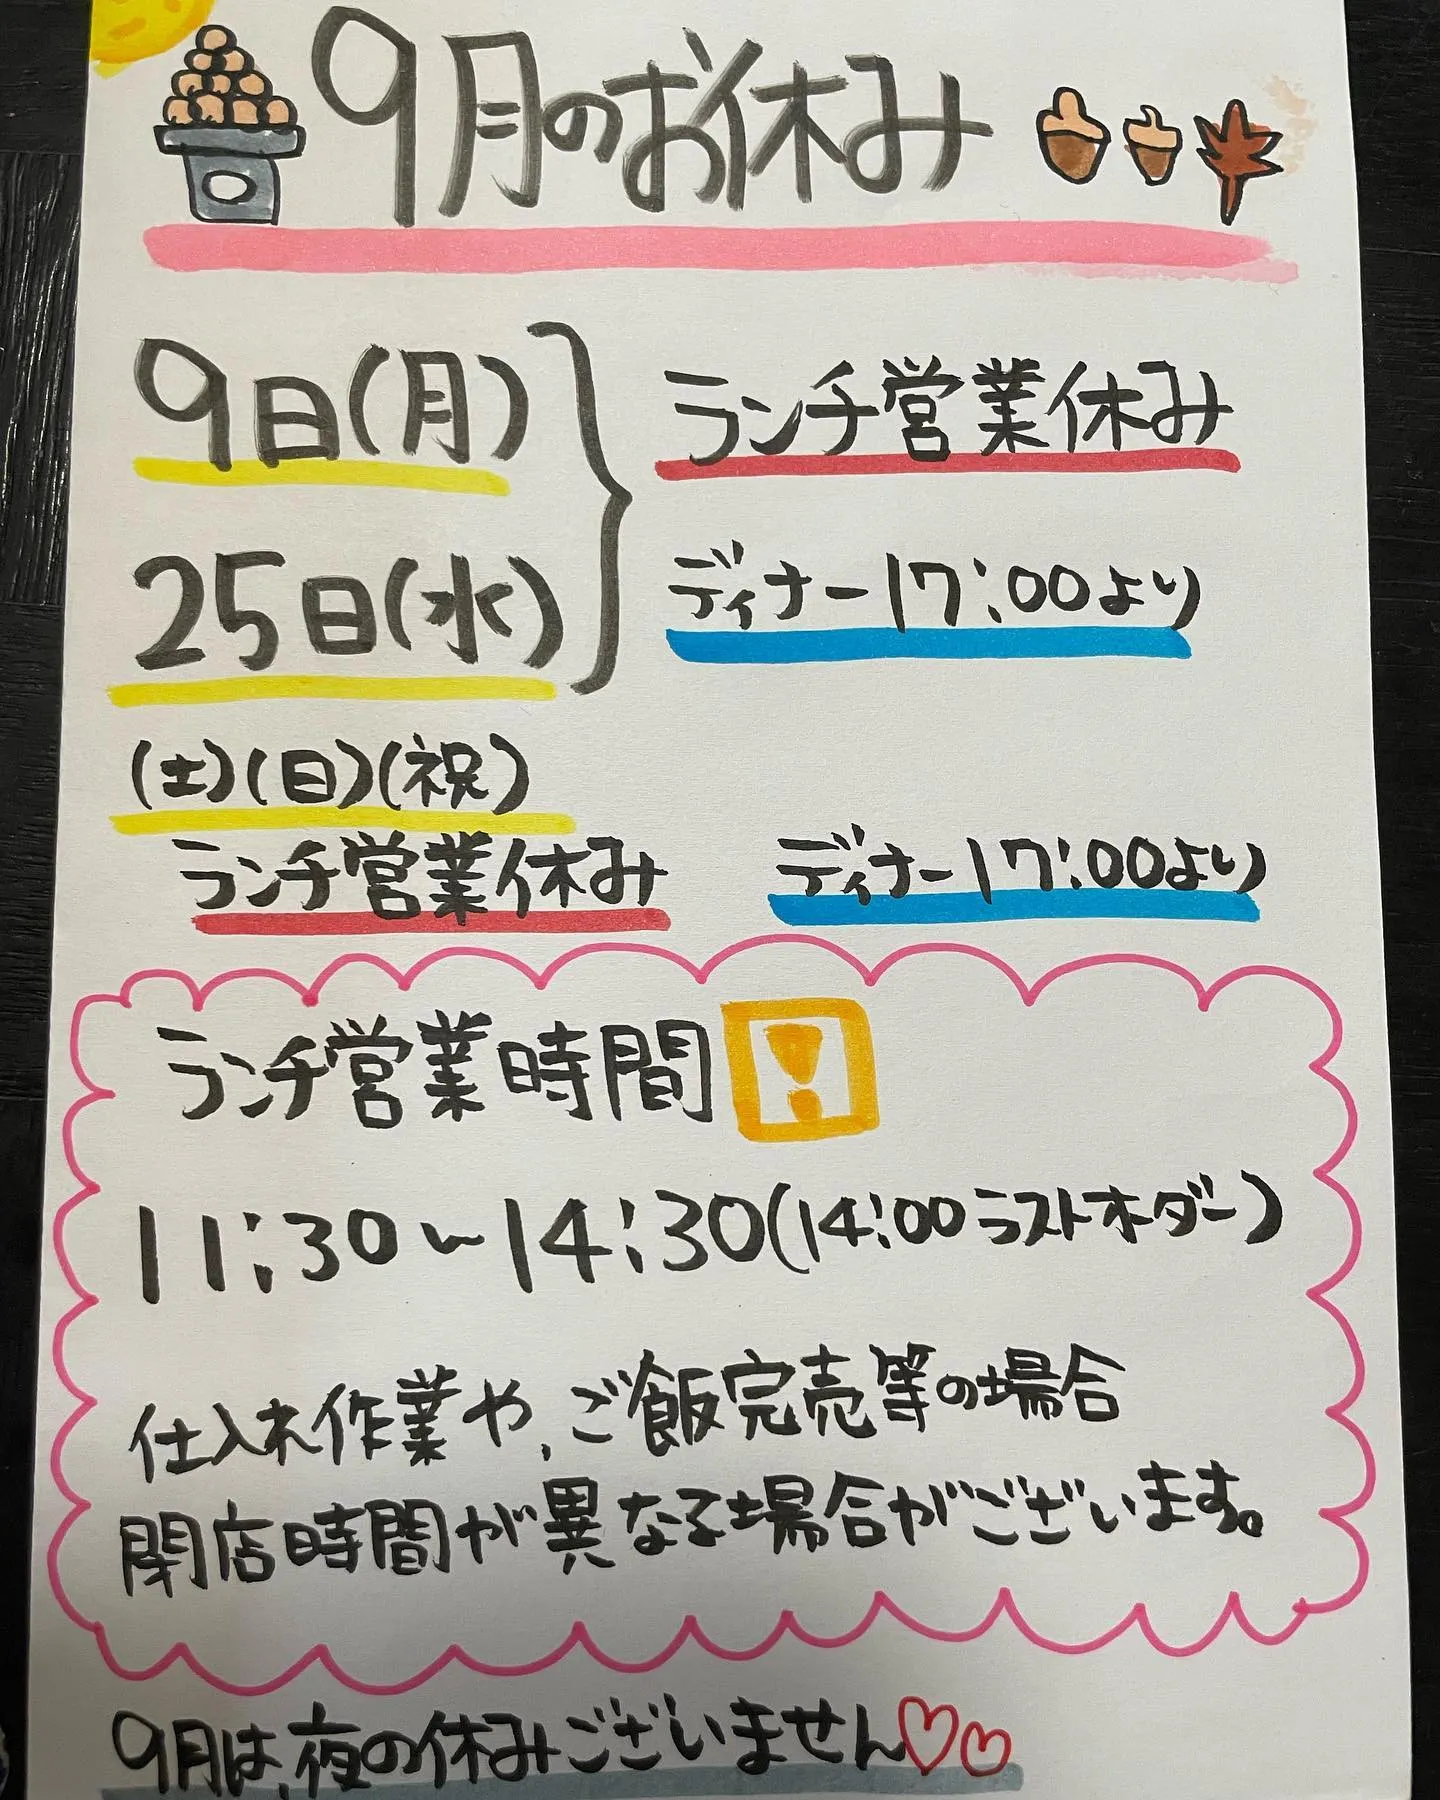 9月のお休み
9日(月)
25日(水)
ランチ営業休み
ディナー17:00より
(土)(日)(祝)
ランチ営業休み ディナー17:00より
ランチ営業時間!
11:30〜14:30(14:00ラストオーダー)
仕入れ作業や、ご飯完売等の場合
閉店時間が異なる場合がございます。
9月は、夜の休みございません♡♡